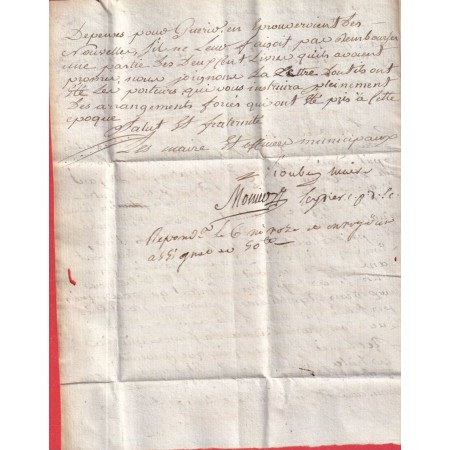 Depenses pour Guerir, en Eprouveroient des
Nouvelles, s'il ne leur faisoit pas Rembourser
une partie des Deux Cent Livres qu'ils avoient
promises, nous joignons La Lettre dont ils ont
été Les porteurs qui vous instruira pleinement
des arrangements forcés qui ont été pris à cette
epoque.
Salut Et fraternité
Les maire Et officiers municipaux
maire
Monier
Repondu le 6 nivose et envoyé
assignat de 50